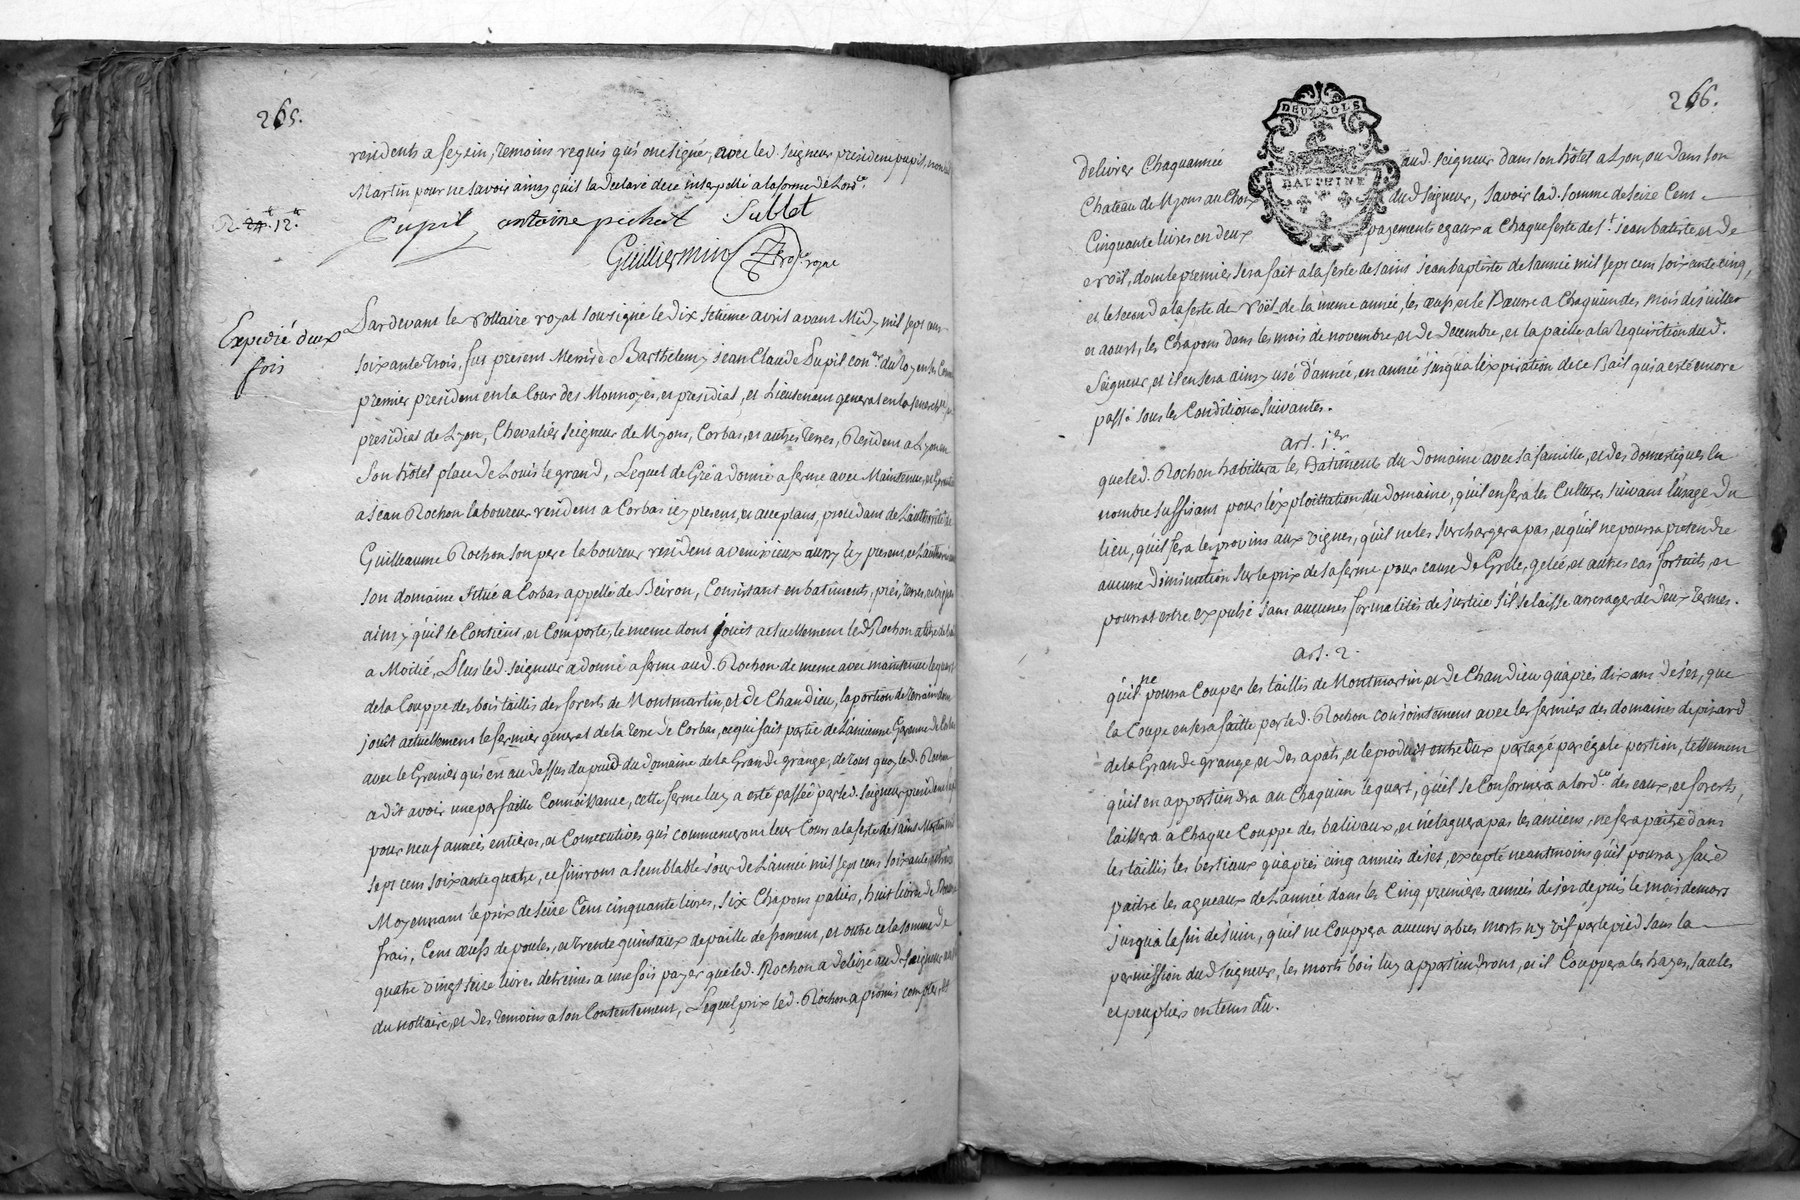 265.
residents a feyzin, temoins requis qui ont signé, avec led. seigneur president pupil, non led.
Martin pour ne savoir ainsy quil la declaré de ce interpellé a la forme de Lord.ce
R. 24.t 12.s
Pupil antoine pichat Sublet
Guilliermin No.re royal
Expedié deux
fois
Pardevant le Nottaire royal soussigné le dix setieme avril avant Midy mil sept cens
soixante trois, fut present Messire Barthelemy jean Claude Pupil con.er du Roy en ses Con.
premier president en la Cour des Monnoyes, et presidial, et Lieutenant general en la senech.ée
presidial de Lyon, Chevalier seigneur de Myons, Corbas, et autres terres, Resident a Lyon en
son hôtel place de Louis le grand, Lequel de Gré a donné a ferme avec Maintenue, et Garantie
a jean Rochon laboureur resident a Corbas icy present, et acceptant, procedant de L'authorité de
Guilleaume Rochon son pere laboureur resident a venissieux aussy icy present, et L'authorisant
son domaine situé a Corbas appellé de Beiron, Consistant en batiments, prés, terres, et vignes
ainsy qu'il se Contient, et Comporte, le meme dont jouit actuellement led. Rochon a titre de bail
a Moitié, Plus led. seigneur a donné a ferme aud. Rochon de meme avec maintenue le quart
de la Couppe des bois taillis des forests de Montmartin, et de Chandieu, la portion de terrain dont
jouit actuellement le fermier general de la Terre de Corbas, ce qui fait partie de L'ancienne Garenne de Corbas
avec le Grenier qui est au dessus du pred du domaine de la Grande grange, de tous quoy led. Rochon
a dit avoir une parfaitte Connoissance, cette ferme luy a esté passée par led. seigneur president Pupil
pour neuf années entieres, et Consecutives qui commenceront leur Cours a la feste de saint Martin mil
sept cens soixante quatre, et finiront a semblable jour de L'année mil sept cens soixante et treize
Moyennant le prix de seize Cens cinquante livres, six Chapons paliers, huit livres de Beurre
frais, Cens oeufs de poules, et trente quintaux de paille de froment, et outre ce la somme de
quatre vingt seize livres detreines a une fois payer que led. Rochon a delivré aud. seigneur au vu
du nottaire, et des temoins a son Contentement, Lequel prix led. Rochon a promis compter, et
266.
DEUX SOLS
DAUPHINE
delivrer Chaquannée aud. seigneur dans son hôtel a Lyon, ou dans son
Chateau de Myons au Choix dud. seigneur, savoir lad. somme de seize Cens
Cinquante livres en deux payements egaux a Chaque feste de S.t jean batiste et de
Noël, dont le premier sera fait a la feste de saint jean baptiste de L'année mil sept cens soixante cinq,
et le second a la feste de Noël de la meme année, les oeufs et le Beurre a Chaqu'un des mois de juillet
et aoust, les Chapons dans les mois de novembre, et de decembre, et la paille a la Requisition dud.
seigneur, et il en sera ainsy usé d'année, en année jusqua l'expiration de ce Bail qui a esté encore
passé sous les Conditions suivantes.
Art. 1er
que led. Rochon habittera les Batiments du domaine avec sa famille, et des domestiques en
nombre suffisant pour l'exploittation du domaine, qu'il en fera les Cultures suivant L'usage du
lieu, qu'il fera les provins aux vignes, qu'il ne les surchargera pas, et qu'il ne pourra pretendre
aucune diminution sur le prix de sa ferme pour cause de Grele, gelée, et autres cas fortuits, et
pourrat estre expulsé sans aucunes formalités de justice s'il se laisse arrerager de deux termes.
Art. 2.
qu'il ne pourra Couper les taillis de Montmartin, et de Chandieu qu'aprés dix ans de sés, que
la Coupe en sera faitte par led. Rochon conjointement avec les fermiers des domaines de pisard
de la Grande grange, et des apats, et le produit entre eux partagé par egale portion, tellement
qu'il en appartiendra au Chaqu'un le quart, qu'il se Conformera a lord.ce des eaux, et forests,
laissera a Chaque Couppe des balivaux, et n'elaguera pas les anciens, ne fera paitre dans
les taillis les bestiaux qu'aprés cinq années de sés, excepté neantmoins qu'il pourra y faire
paitre les agneaux de L'année dans les Cinq premieres années de ses depuis le mois de mars
jusqu'a la fin de juin, qu'il ne Couppera aucuns arbres morts n'y vif par le pied sans la
permission dud. seigneur, les morts bois luy appartiendront, et il Couppera les hayes, saules
et peupliers en tems du.